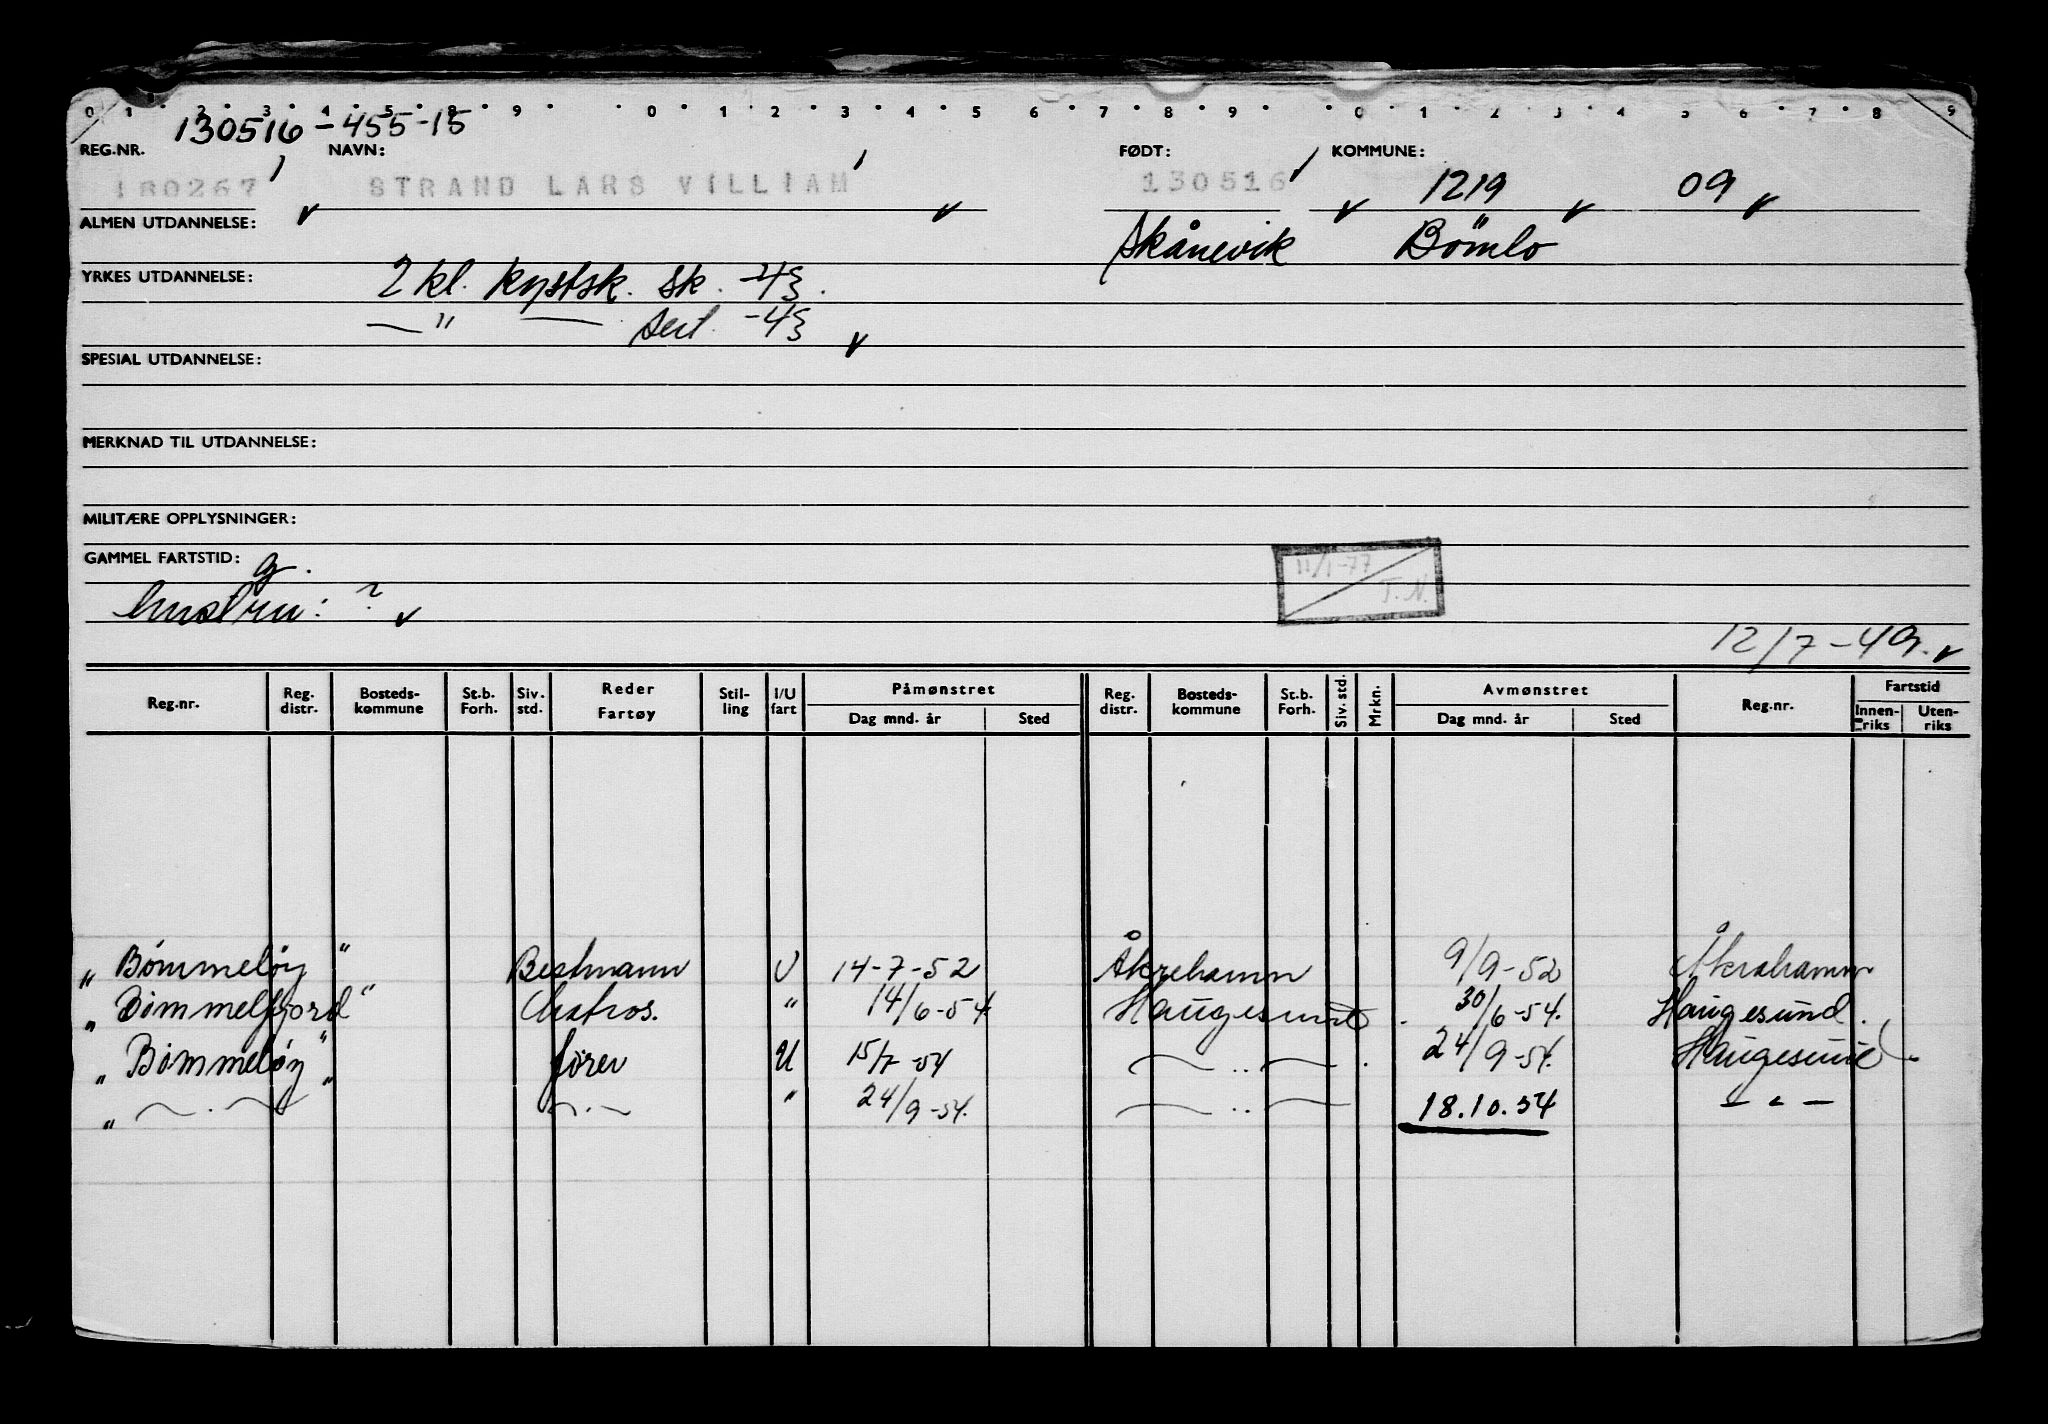 0 1 2 3 4 5 8 9 0 1 2 3 4 5 6 7 8 9 0 1 2 3 4 5 6 7 8 9
130516-455-15
REG.NR. NAVN: FØDT: KOMMUNE:
180267 STRAND LARS VILLIAM 130516 1219 09
ALMEN UTDANNELSE: Skånevik Bömlo
YRKES UTDANNELSE: 2 kl. kystsk. sk. -43.
—"— sert. -43
SPESIAL UTDANNELSE:
MERKNAD TIL UTDANNELSE:
MILITÆRE OPPLYSNINGER:
GAMMEL FARTSTID: g.
hustru: ?
11/1-77
T.N.
12/7-49.
Reg.nr. Reg. distr. Bosteds-kommune St.b. Forh. Siv. std. Reder Fartøy Stil-ling I/U fart Påmønstret Dag mnd. år Sted Reg. distr. Bosteds-kommune St.b. Forh. Siv. std. Mrkn. Avmønstret Dag mnd. år Sted Reg.nr. Fartstid Innen-riks Uten-riks
„Bømmeløy" Bestmann U 14-7-52 Åkrehamn 9/9-52 Åkrahamn
„Bømmelfjord" Matros. " 14/6-54 Haugesund. 30/6-54. Haugesund.
„Bømmeløy" fører U 15/7-54 — .. — . 24/9-54. Haugesund.
„ — . — " — . — " 24/9-54. — .. — 18.10.54 — " —